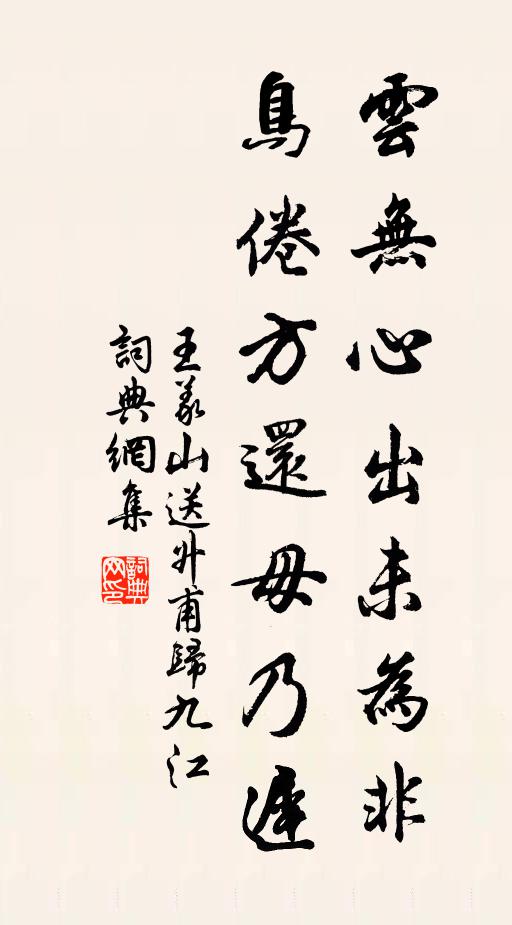 雲無心出未為非
鳥倦方還毋乃遲
王義山送升甫歸九江
詞典網集
詞典網印